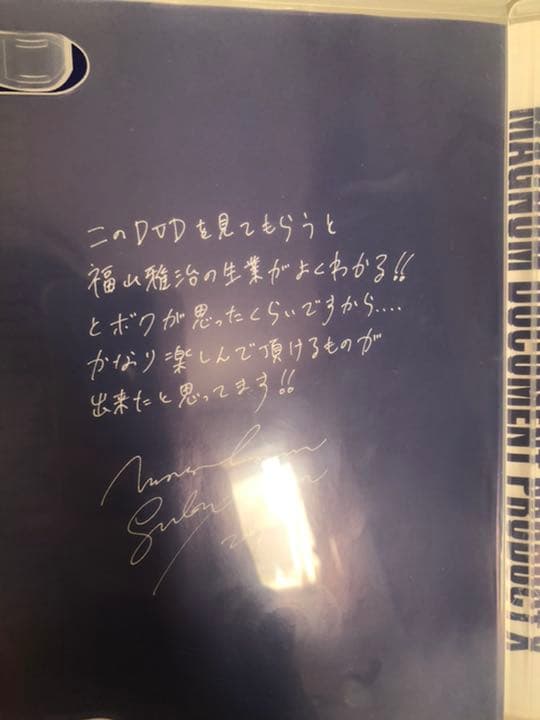 このDVDを見てもらうと
福山雅治の生業がよくわかる!!
とボクが思ったくらいですから....
かなり楽しんで頂けるものが
出来たと思ってます!!
MAGNUM DOCUMENT PRODUCT X